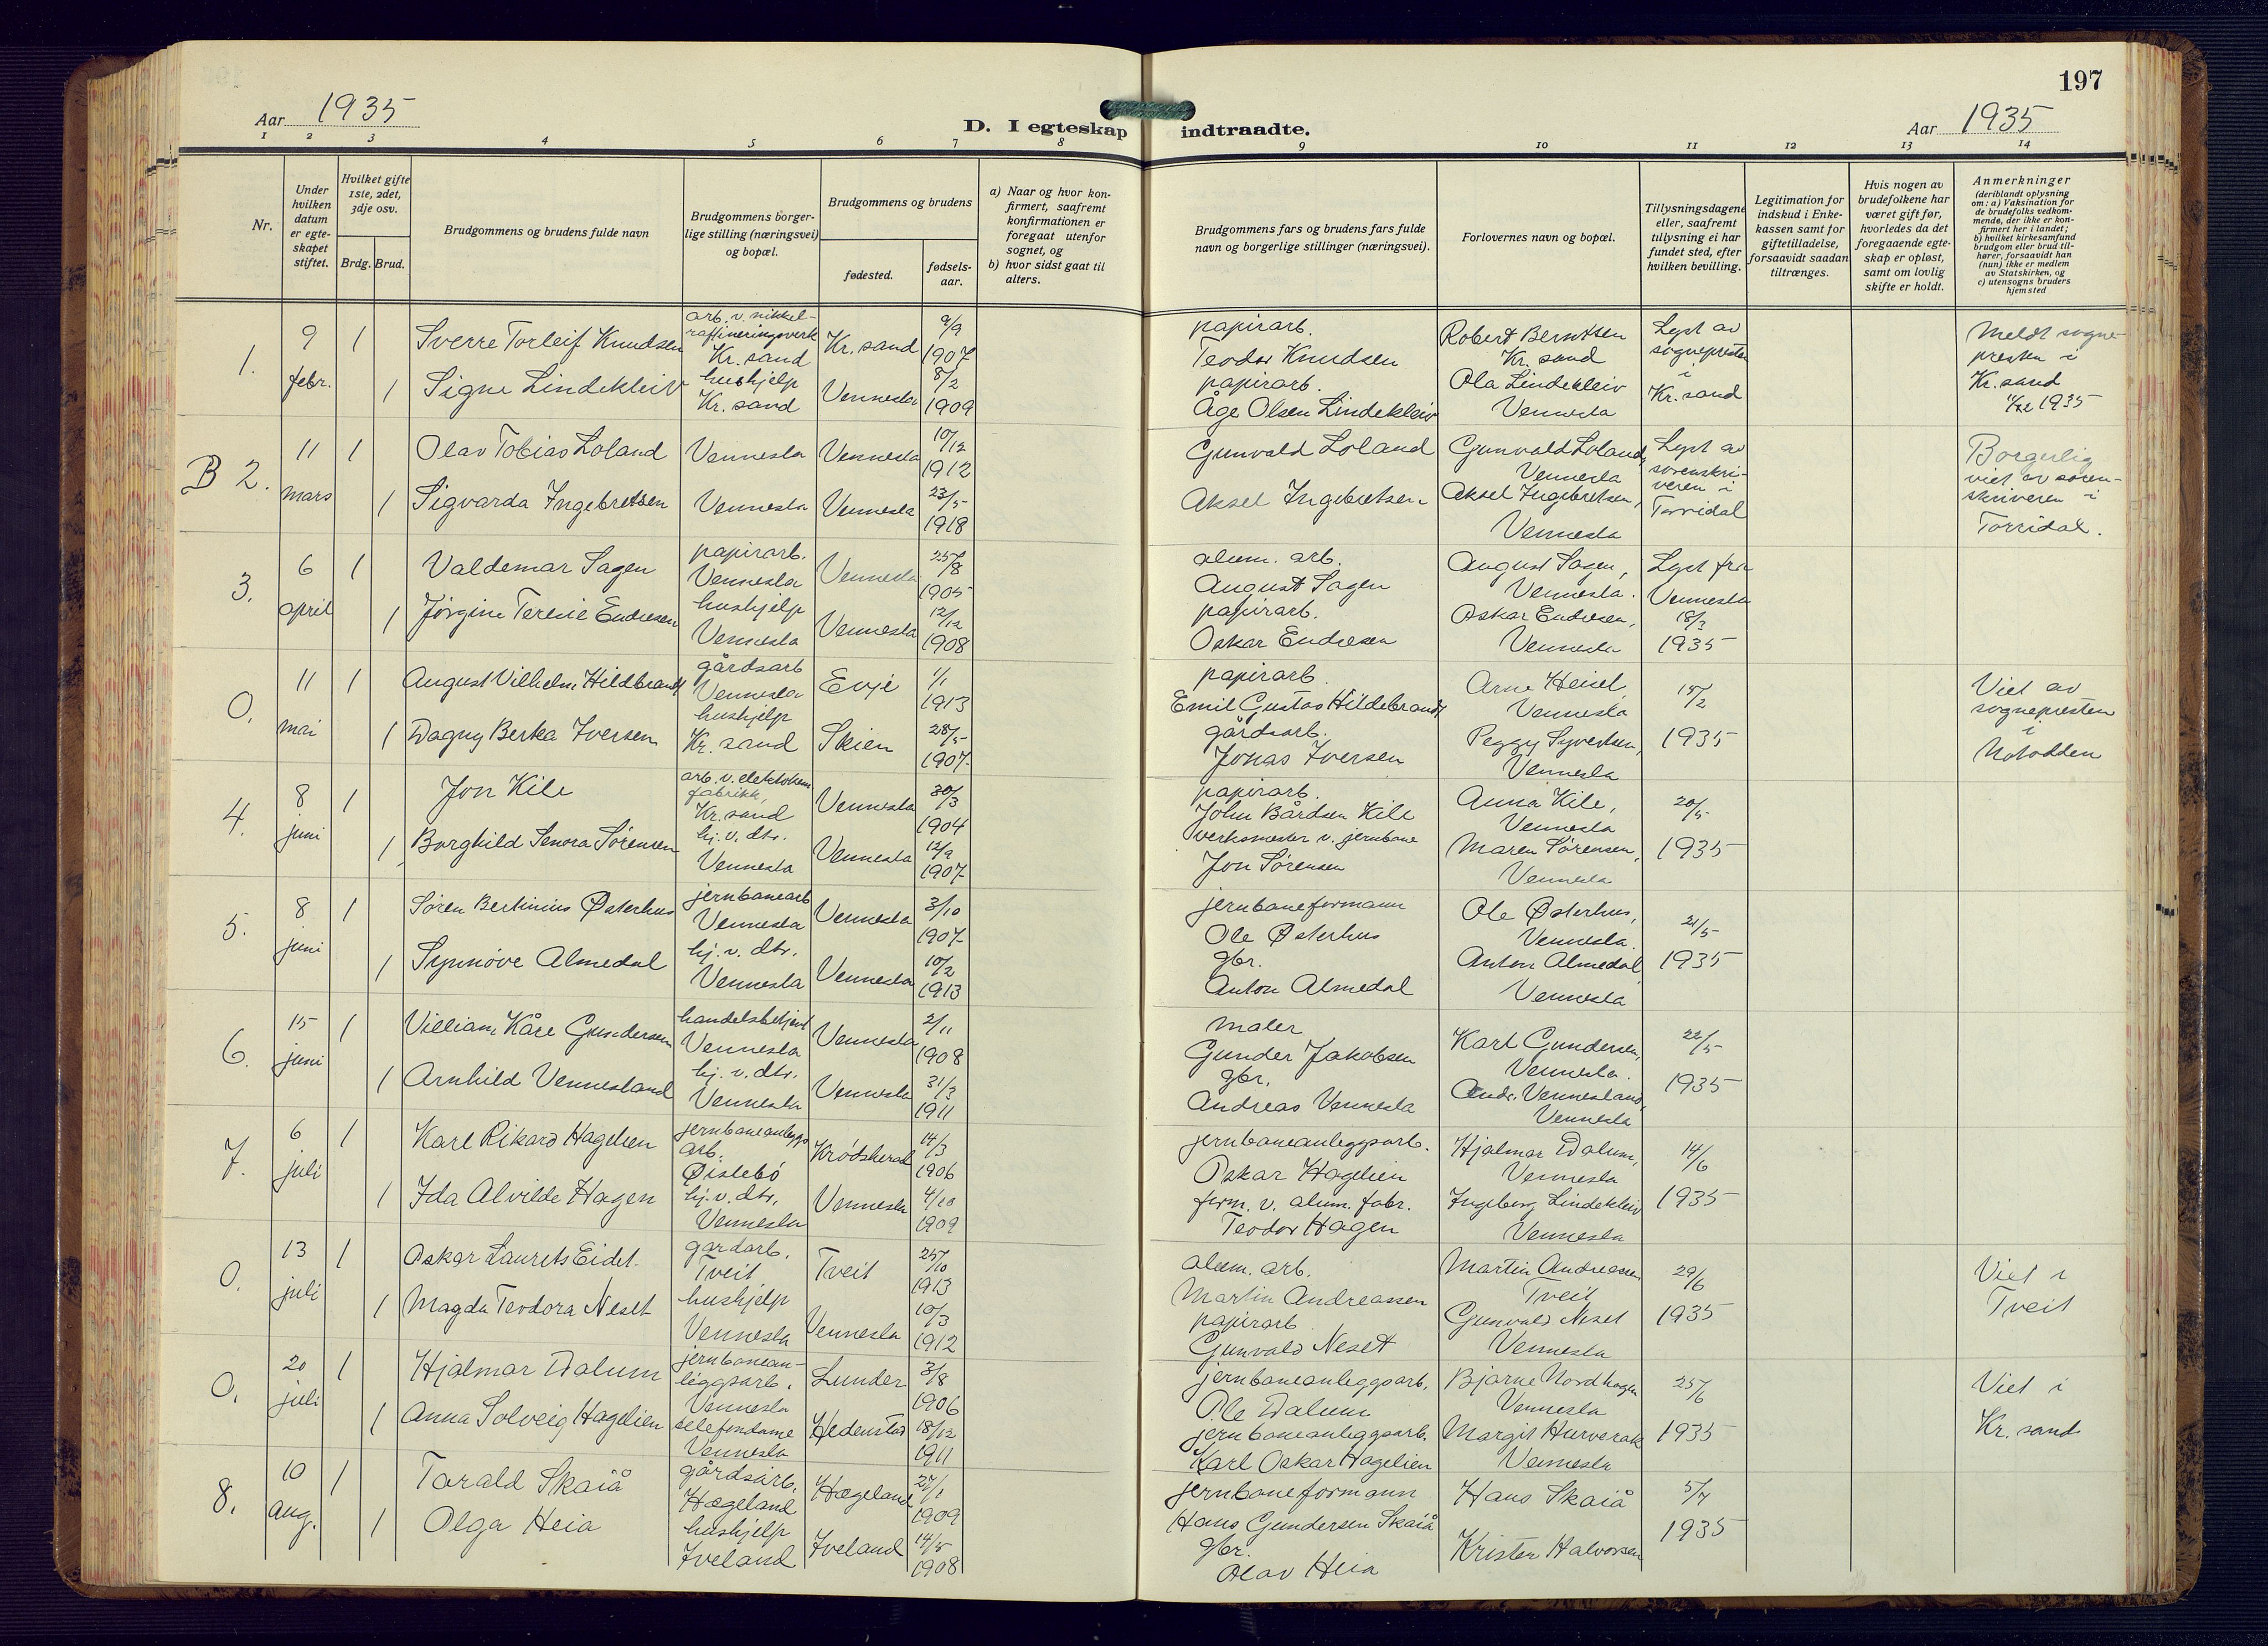 197
Aar 1935
D. I egteskap indtraadte.
Aar 1935
1 2 3 4 5 6 7 8 9 10 11 12 13 14
Nr.
Under hvilken datum er egteskapet stiftet.
Hvilket gifte 1ste, 2det, 3dje osv.
Brdg. Brud.
Brudgommens og brudens fulde navn
Brudgommens borgerlige stilling (næringsvei) og bopæl.
Brudgommens og brudens
fødested.
fødselsaar.
a) Naar og hvor konfirmert, saafremt konfirmationen er foregaat utenfor sognet, og
b) hvor sidst gaat til alters.
Brudgommens fars og brudens fars fulde navn og borgerlige stillinger (næringsvei).
Forlovernes navn og bopæl.
Tillysningsdagene eller, saafremt tillysning ei har fundet sted, efter hvilken bevilling.
Legitimation for indskud i Enkekassen samt for giftetilladelse, forsaavidt saadan tiltrænges.
Hvis nogen av brudefolkene har været gift før, hvorledes da det foregaaende egteskap er opløst, samt om lovlig skifte er holdt.
Anmerkninger
(deriblandt oplysning om: a) Vaksination for de brudefolks vedkommende, der ikke er konfirmert her i landet; b) hvilket kirkesamfund brudgom eller brud tilhører, forsaavidt han (hun) ikke er medlem av Statskirken, og c) utensogns bruders hjemsted
1. 9 febr. 1 Sverre Torleif Knudsen arb. v. nikkelraffineringsverk Kr. sand Kr. sand 9/9 1907 papirarb. Teodor Knudsen Robert Berntsen Kr. sand Lyst av sognepresten i Kr. sand Meldt sognepresten i Kr. sand 1935
1 Signe Lindekleiv hushjelp Kr. sand Vennesla 8/2 1909 papirarb. Åge Olsen Lindekleiv Ola Lindekleiv Vennesla
B 2. 11 mars 1 Olav Tobias Loland Vennesla Vennesla 10/12 1912 Gunvald Loland Gunvald Loland, Vennesla Lyst av sorenskriveren i Torridal Borgerlig viet av sorenskriveren i Torridal.
1 Sigvarda Ingebretsen Vennesla Vennesla 23/5 1918 Aksel Ingebretsen Aksel Ingebretsen, Vennesla
3. 6 april 1 Valdemar Sagen papirarb. Vennesla Vennesla 25/8 1905 alum. arb. August Sagen August Sagen, Vennesla. Lyst fra Vennesla 18/3 1935
1 Jørgine Terene Endresen hushjelp Vennesla Vennesla 12/12 1908 papirarb. Oskar Endresen Oskar Endresen, Vennesla
0. 11 mai 1 August Vilhelm Hildbrandt gårdsarb Vennesla Evje 1/1 1913 papirarb. Emil Gustav Hildebrandt Arne Heisel, Vennesla 15/2 1935 Viet av sognepresten i Notodden
1 Dagny Berta Iversen hushjelp Kr. sand Skien 28/5 1907 gårdsarb. Jonas Iversen Peggy Syvertsen, Vennesla
4. 8 juni 1 Jon Kile arb. v. elektrokem fabrikk, Kr. sand Vennesla 30/3 1904 papirarb. John Bårdsen Kile Anna Kile, Vennesla 20/5 1935
1 Borghild Senora Sørensen hj. v. dtr. Vennesla Vennesla 12/9 1907 verksmester v. jernbane Jon Sørensen Maren Sørensen, Vennesla
5. 8 juni 1 Søren Bertinius Østerhus jernbanearb Vennesla Vennesla 3/10 1907 jernbaneformann Ole Østerhus Ole Østerhus, Vennesla. 21/5 1935
1 Synnøve Almedal hj. v. dtr. Vennesla Vennesla 10/2 1913 gbr. Anton Almedal Anton Almedal, Vennesla
6. 15 juni 1 Villiam Kåre Gundersen handelsbetjent Vennesla Vennesla 2/11 1908 maler Gunder Jakobsen Karl Gundersen, Vennesla. 22/5 1935
1 Arnhild Vennesland hj. v. dtr. Vennesla Vennesla 31/3 1911 gbr. Andreas Vennesla Andr. Vennesland, Vennesla
7. 6 juli 1 Karl Rikard Hagelien jernbaneanleggsarb. Øislebö Krödsherad 14/3 1906 jernbaneanleggsarb. Oskar Hagelien Hjalmar Dalum, Vennesla 14/6 1935
1 Ida Alvilde Hagen hj. v. dtr. Vennesla Vennesla 4/10 1909 form. v. alum. fabr. Teodor Hagen Ingeborg Lindekleiv Vennesla
0. 13 juli 1 Oskar Laurets Eidet. gardarb. Tveit Tveit 25/10 1913 alum. arb. Martin Andreassen Martin Andreassen Tveit 29/6 1935 Viet i Tveit
1 Magda Teodora Neset hushjelp Vennesla Vennesla 10/3 1912 papirarb. Gunvald Neset Gunvald Neset Vennesla
0. 20 juli 1 Hjalmar Dalum jernbaneanleggsarb. Vennesla Lunder 3/8 1906 jernbaneanleggsarb. Ole Dalum Bjarne Nordhagen Vennesla 25/6 1935 Viet i Kr. sand
1 Anna Solveig Hagelien telefondame Vennesla Hedenstad 18/12 1911 jernbaneanleggsarb. Karl Oskar Hagelien Margit Hurverak Vennesla
8. 10 aug. 1 Torald Skaiå gårdsarb. Hægeland Hægeland 27/1 1909 jernbaneformann Hans Gundersen Skaiå Hans Skaiå 5/7 1935
1 Olga Heia hushjelp Iveland Iveland 14/5 1908 gbr. Olav Heia Krister Halvorsen